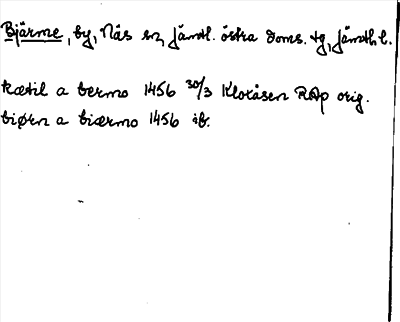 Bjärme, by, Näs sn, Jämtl. östra doms. tg, Jämtl. l.
kætil a bermo 1456 30/3 Klokåsen RAp orig.
biørn a biærmo 1456 ib.